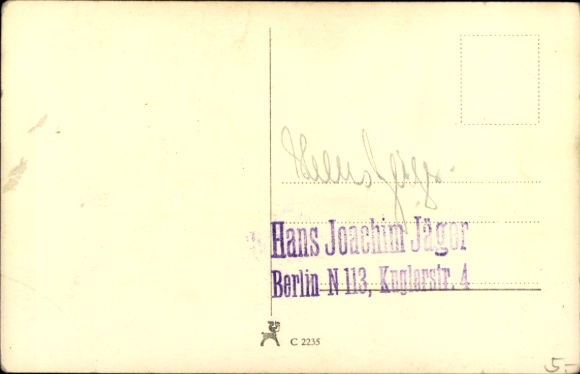 Hans Joachim Jäger
Berlin N 113, Kuglerstr. 4
C 2235
5.-